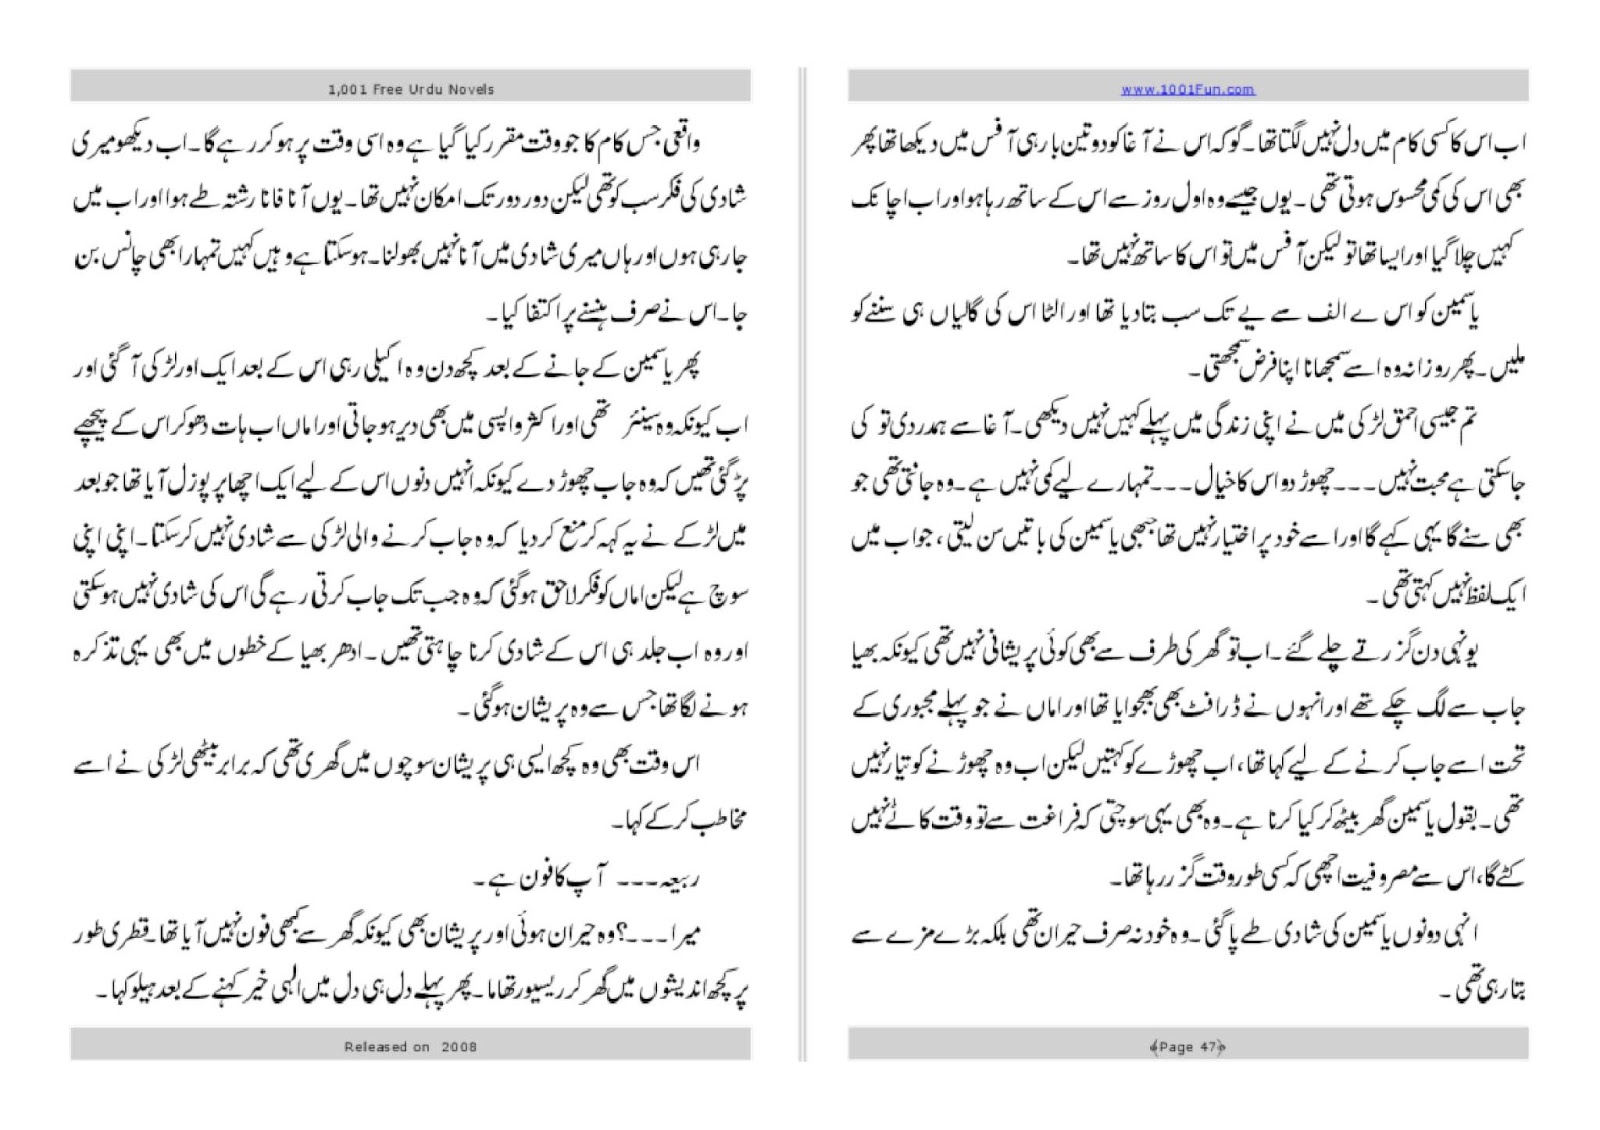 www.1001Fun.com
اب اس کا کسی کام میں دل نہیں لگتا تھا۔ گو کہ اس نے آغا کو دو تین بار ہی آفس میں دیکھا تھا پھر
بھی اس کی کمی محسوس ہوتی تھی ۔ یوں جیسے وہ اول روز سے اس کے ساتھ رہا ہو اور اب اچانک
کہیں چلا گیا اور ایسا تھا تو لیکن آفس میں تو اس کا ساتھ نہیں تھا۔
یاسمین کو اس ے الف سے یے تک سب بتا دیا تھا اور الٹا اس کی گالیاں ہی سننے کو
ملیں۔ پھر روزانہ وہ اسے سمجھانا اپنا فرض سمجھتی ۔
تم جیسی احمق لڑکی میں نے اپنی زندگی میں پہلے کہیں نہیں دیکھی۔ آغا سے ہمدردی تو کی
جا سکتی ہے محبت نہیں ۔۔۔ چھوڑ دو اس کا خیال ۔۔۔ تمہارے لیے کمی نہیں ہے۔ وہ جانتی تھی جو
بھی سنے گا یہی کہے گا اور اسے خود پر اختیار نہیں تھا جبھی یاسمین کی باتیں سن لیتی ، جواب میں
ایک لفظ نہیں کہتی تھی ۔
یونہی دن گزرتے چلے گئے ۔ اب تو گھر کی طرف سے بھی کوئی پریشانی نہیں تھی کیونکہ بھیا
جاب سے لگ چکے تھے اور انہوں نے ڈرافٹ بھی بھجوایا تھا اور اماں نے جو پہلے مجبوری کے
تحت اسے جاب کرنے کے لیے کہا تھا، اب چھوڑے کو کہتیں لیکن اب وہ چھوڑنے کو تیار نہیں
تھی ۔ بقول یاسمین گھر بیٹھ کر کیا کرنا ہے ۔ وہ بھی یہی سوچتی کہ فراغت سے تو وقت کاٹے نہیں
کٹے گا، اس سے مصروفیت اچھی کہ کسی طور وقت گزر رہا تھا۔
انہی دونوں یاسمین کی شادی طے پا گئی ۔ وہ خود نہ صرف حیران تھی بلکہ بڑے مزے سے
بتا رہی تھی ۔
Page 47
1,001 Free Urdu Novels
واقعی جس کام کا جو وقت مقرر کیا گیا ہے وہ اسی وقت پر ہو کر رہے گا۔ اب دیکھو میری
شادی کی فکر سب کو تھی لیکن دور دور تک امکان نہیں تھا۔ یوں آنا فانا رشتہ طے ہوا اور اب میں
جا رہی ہوں اور ہاں میری شادی میں آنا نہیں بھولنا۔ ہو سکتا ہے وہیں کہیں تمہارا بھی چانس بن
جا۔ اس نے صرف ہنسنے پر اکتفا کیا ۔
پھر یاسمین کے جانے کے بعد کچھ دن وہ اکیلی رہی اس کے بعد ایک اور لڑکی آ گئی اور
اب کیونکہ وہ سینئر تھی اور اکثر واپسی میں بھی دیر ہو جاتی اور اماں اب ہات دھو کر اس کے پیچھے
پڑ گئی تھیں کہ وہ جاب چھوڑ دے کیونکہ انہیں دنوں اس کے لیے ایک اچھا پرپوزل آیا تھا جو بعد
میں لڑکے نے یہ کہہ کر منع کر دیا کہ وہ جاب کرنے والی لڑکی سے شادی نہیں کر سکتا۔ اپنی اپنی
سوچ ہے لیکن اماں کو فکر لاحق ہو گئی کہ وہ جب تک جاب کرتی رہے گی اس کی شادی نہیں ہو سکتی
اور وہ اب جلد ہی اس کے شادی کرنا چاہتی تھیں ۔ ادھر بھیا کے خطوں میں بھی یہی تذکرہ
ہونے لگا تھا جس سے وہ پریشان ہو گئی ۔
اس وقت بھی وہ کچھ ایسی ہی پریشان سوچوں میں گھری تھی کہ برابر بیٹھی لڑکی نے اسے
مخاطب کر کے کہا۔
ربیعہ ۔۔۔ آپ کا فون ہے ۔
میرا ۔۔۔؟ وہ حیران ہوئی اور پریشان بھی کیونکہ گھر سے کبھی فون نہیں آیا تھا۔ قطری طور
پر کچھ اندیشوں میں گھر کر ریسیور تھاما ۔ پھر پہلے دل ہی دل میں الہی خیر کہنے کے بعد ہیلو کہا ۔
Released on 2008